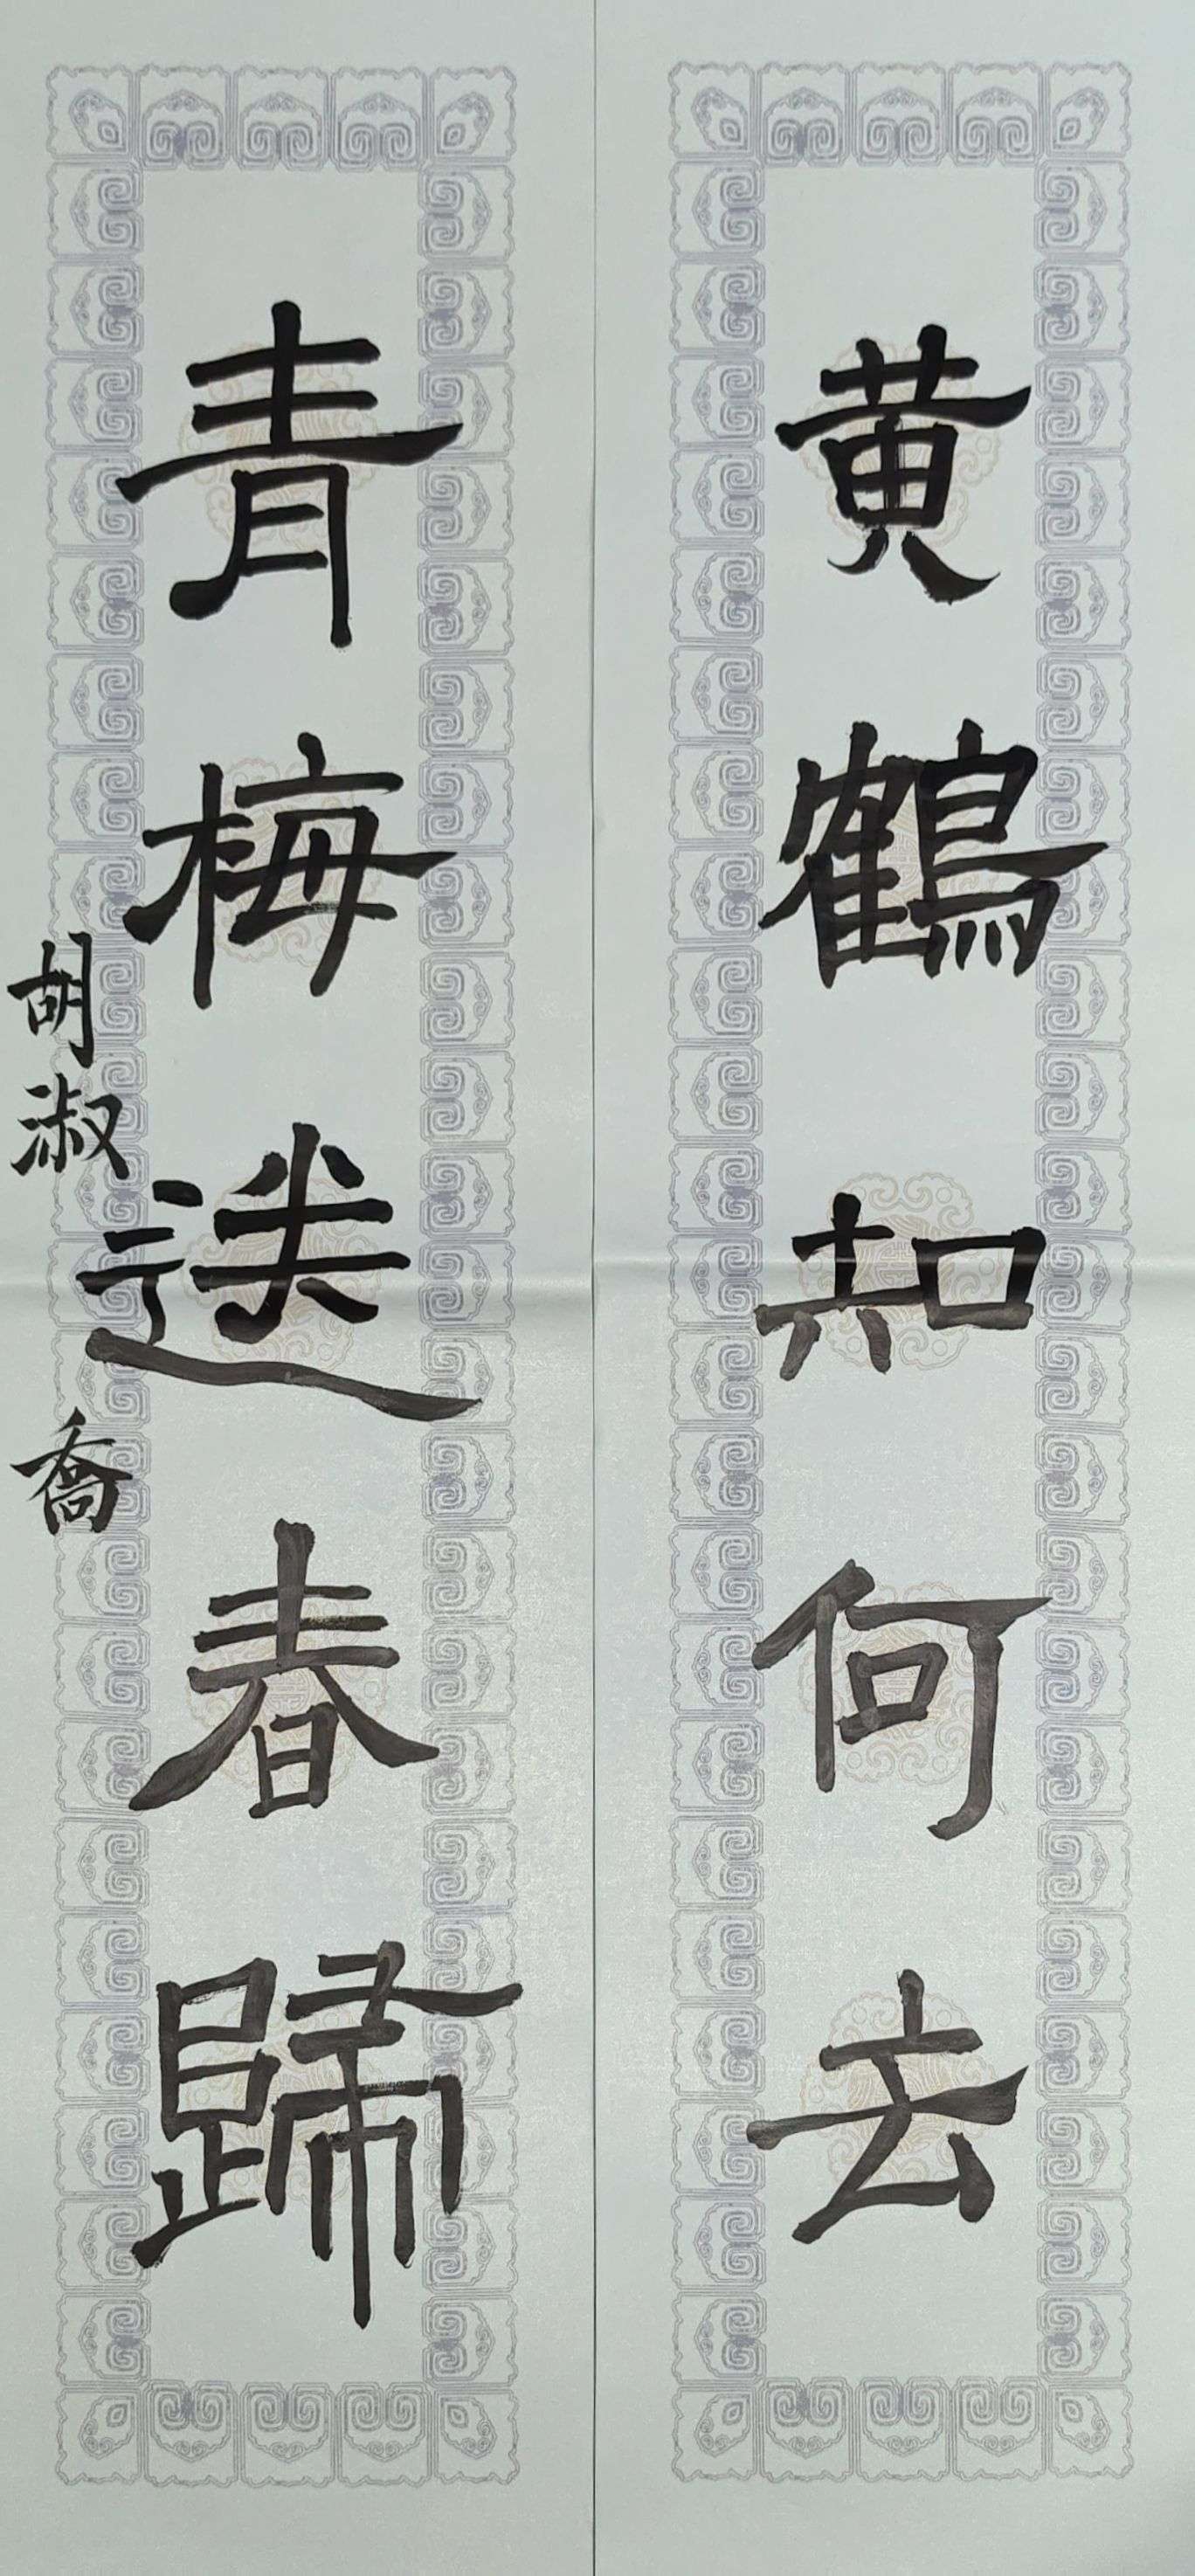 黄鶴知何去
青梅送春歸
胡淑喬